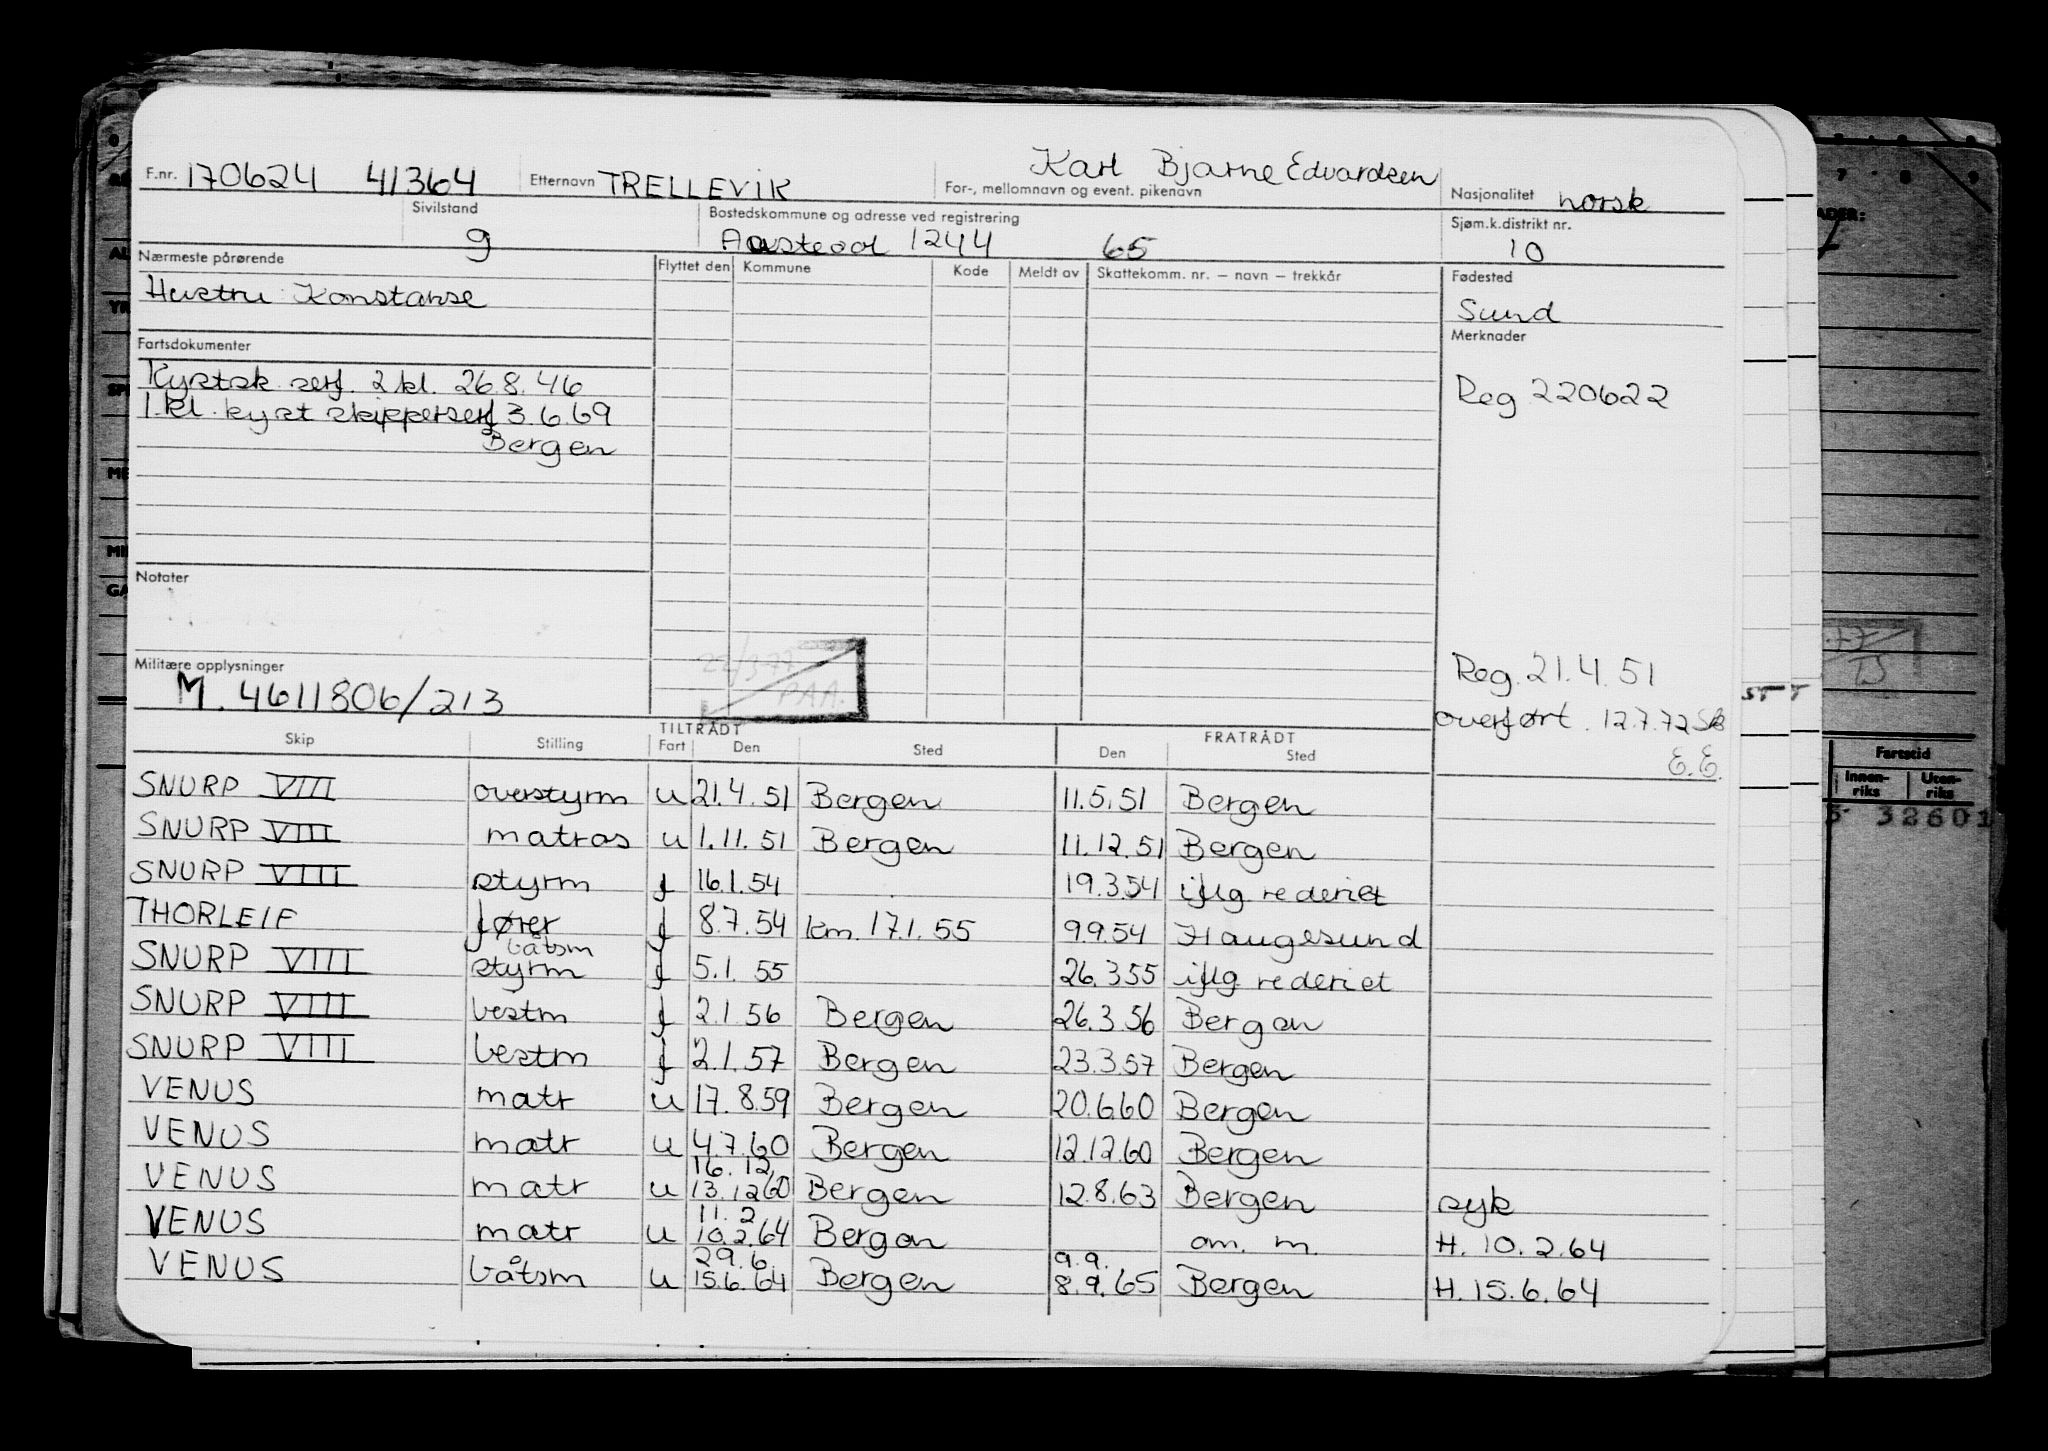 F.nr. 170624 41364 Etternavn TRELLEVIK Karl Bjarne Edvardsen For-, mellomnavn og event. pikenavn Nasjonalitet norsk
Sivilstand g Bostedskommune og adresse ved registrering Austevol 1244 65 Sjøm.k.distrikt nr. 10
Nærmeste pårørende Flyttet den Kommune Kode Meldt av Skattekomm. nr. – navn – trekkår Fødested
Hustru Konstanse Sund
Fartsdokumenter Merknader
Kystsk. serf. 2 kl. 26.8.46 Reg 220622
1.kl. kyst skipperserf 3.6.69
Bergen
Notater
Militære opplysninger
M. 4611806/213
22/3-77
PAA.
Reg. 21.4.51
overført. 12.7.72 Sk
E.E.
TILTRÅDT FRATRÅDT
Skip Stilling Fart Den Sted Den Sted
SNURP VIII overstyrm u 21.4.51 Bergen 11.5.51 Bergen
SNURP VIII matros u 1.11.51 Bergen 11.12.51 Bergen
SNURP VIII styrm f 16.1.54 19.3.54 iflg rederiet
THORLEIF fører f 8.7.54 km. 17.1.55 9.9.54 Haugesund
båtsm
SNURP VIII styrm f 5.1.55 26.3.55 iflg rederiet
SNURP VIII bestm f 2.1.56 Bergen 26.3.56 Bergen
SNURP VIII bestm f 2.1.57 Bergen 23.3.57 Bergen
VENUS matr u 17.8.59 Bergen 20.6.60 Bergen
VENUS matr u 4.7.60 Bergen 12.12.60 Bergen
16.12
VENUS matr u 13.12.60 Bergen 12.8.63 Bergen syk
11.2
VENUS matr u 10.2.64 Bergen am. m. H. 10.2.64
29.6 9.9.
VENUS båtsm u 15.6.64 Bergen 8.9.65 Bergen H. 15.6.64
TS
Fartstid
Innen-riks Uten-riks
32601